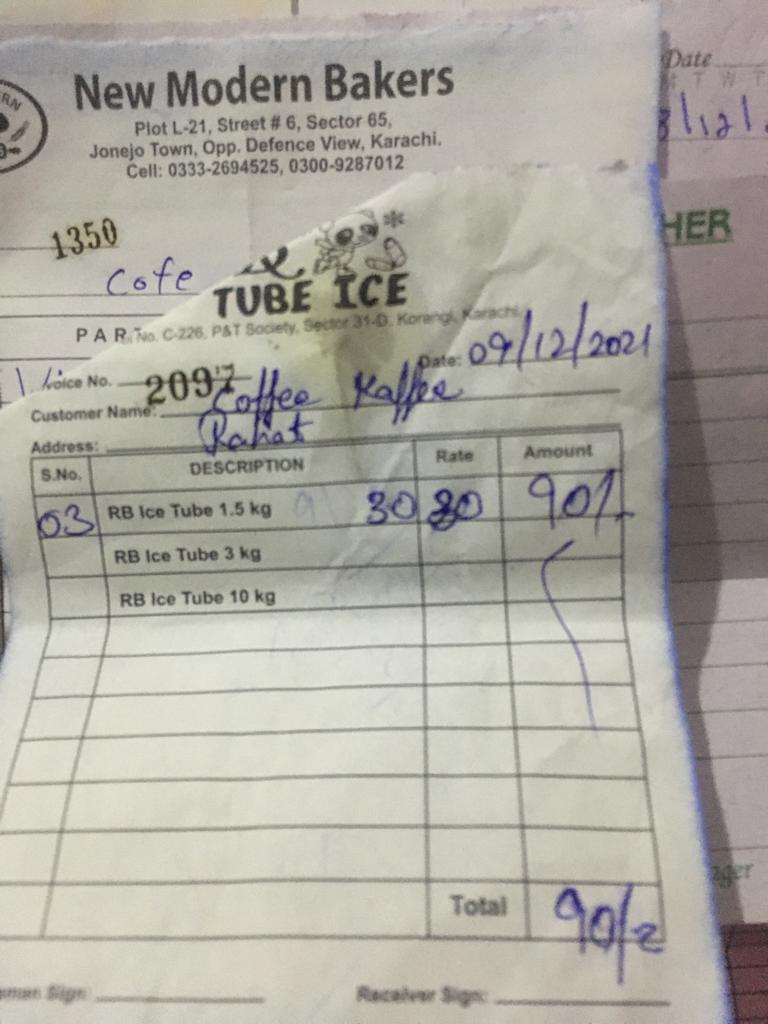 New Modern Bakers
Plot L-21, Street # 6, Sector 65,
Jonejo Town, Opp. Defence View, Karachi.
Cell: 0333-2694525, 0300-9287012
Date
T W T
/12/
HER
1350
Cofe
TUBE ICE
PAR
No. C-226, P&T Society, Sector 31-D, Korangi, Karachi.
voice No. 2097
Date: 09/12/2021
Customer Name: Coffee Kaffee
Address: Rahat
S.No. DESCRIPTION Rate Amount
03 RB Ice Tube 1.5 kg 30 30 90/-
RB Ice Tube 3 kg
RB Ice Tube 10 kg
Total 90/=
ger
Sign:
Receiver Sign: